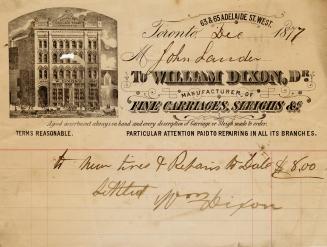 63 & 65 ADELAIDE ST. WEST.
Toronto, Dec 1877
M John Lauder
To WILLIAM DIXON, Dr.
MANUFACTURER OF
FINE CARRIAGES, SLEIGHS &c.
A good assortment always on hand and every description of Carriage or Sleigh made to order.
TERMS REASONABLE. PARTICULAR ATTENTION PAID TO REPAIRING IN ALL ITS BRANCHES.
to New tires & Repairs to Date $8.00
Settled
Wm Dixon